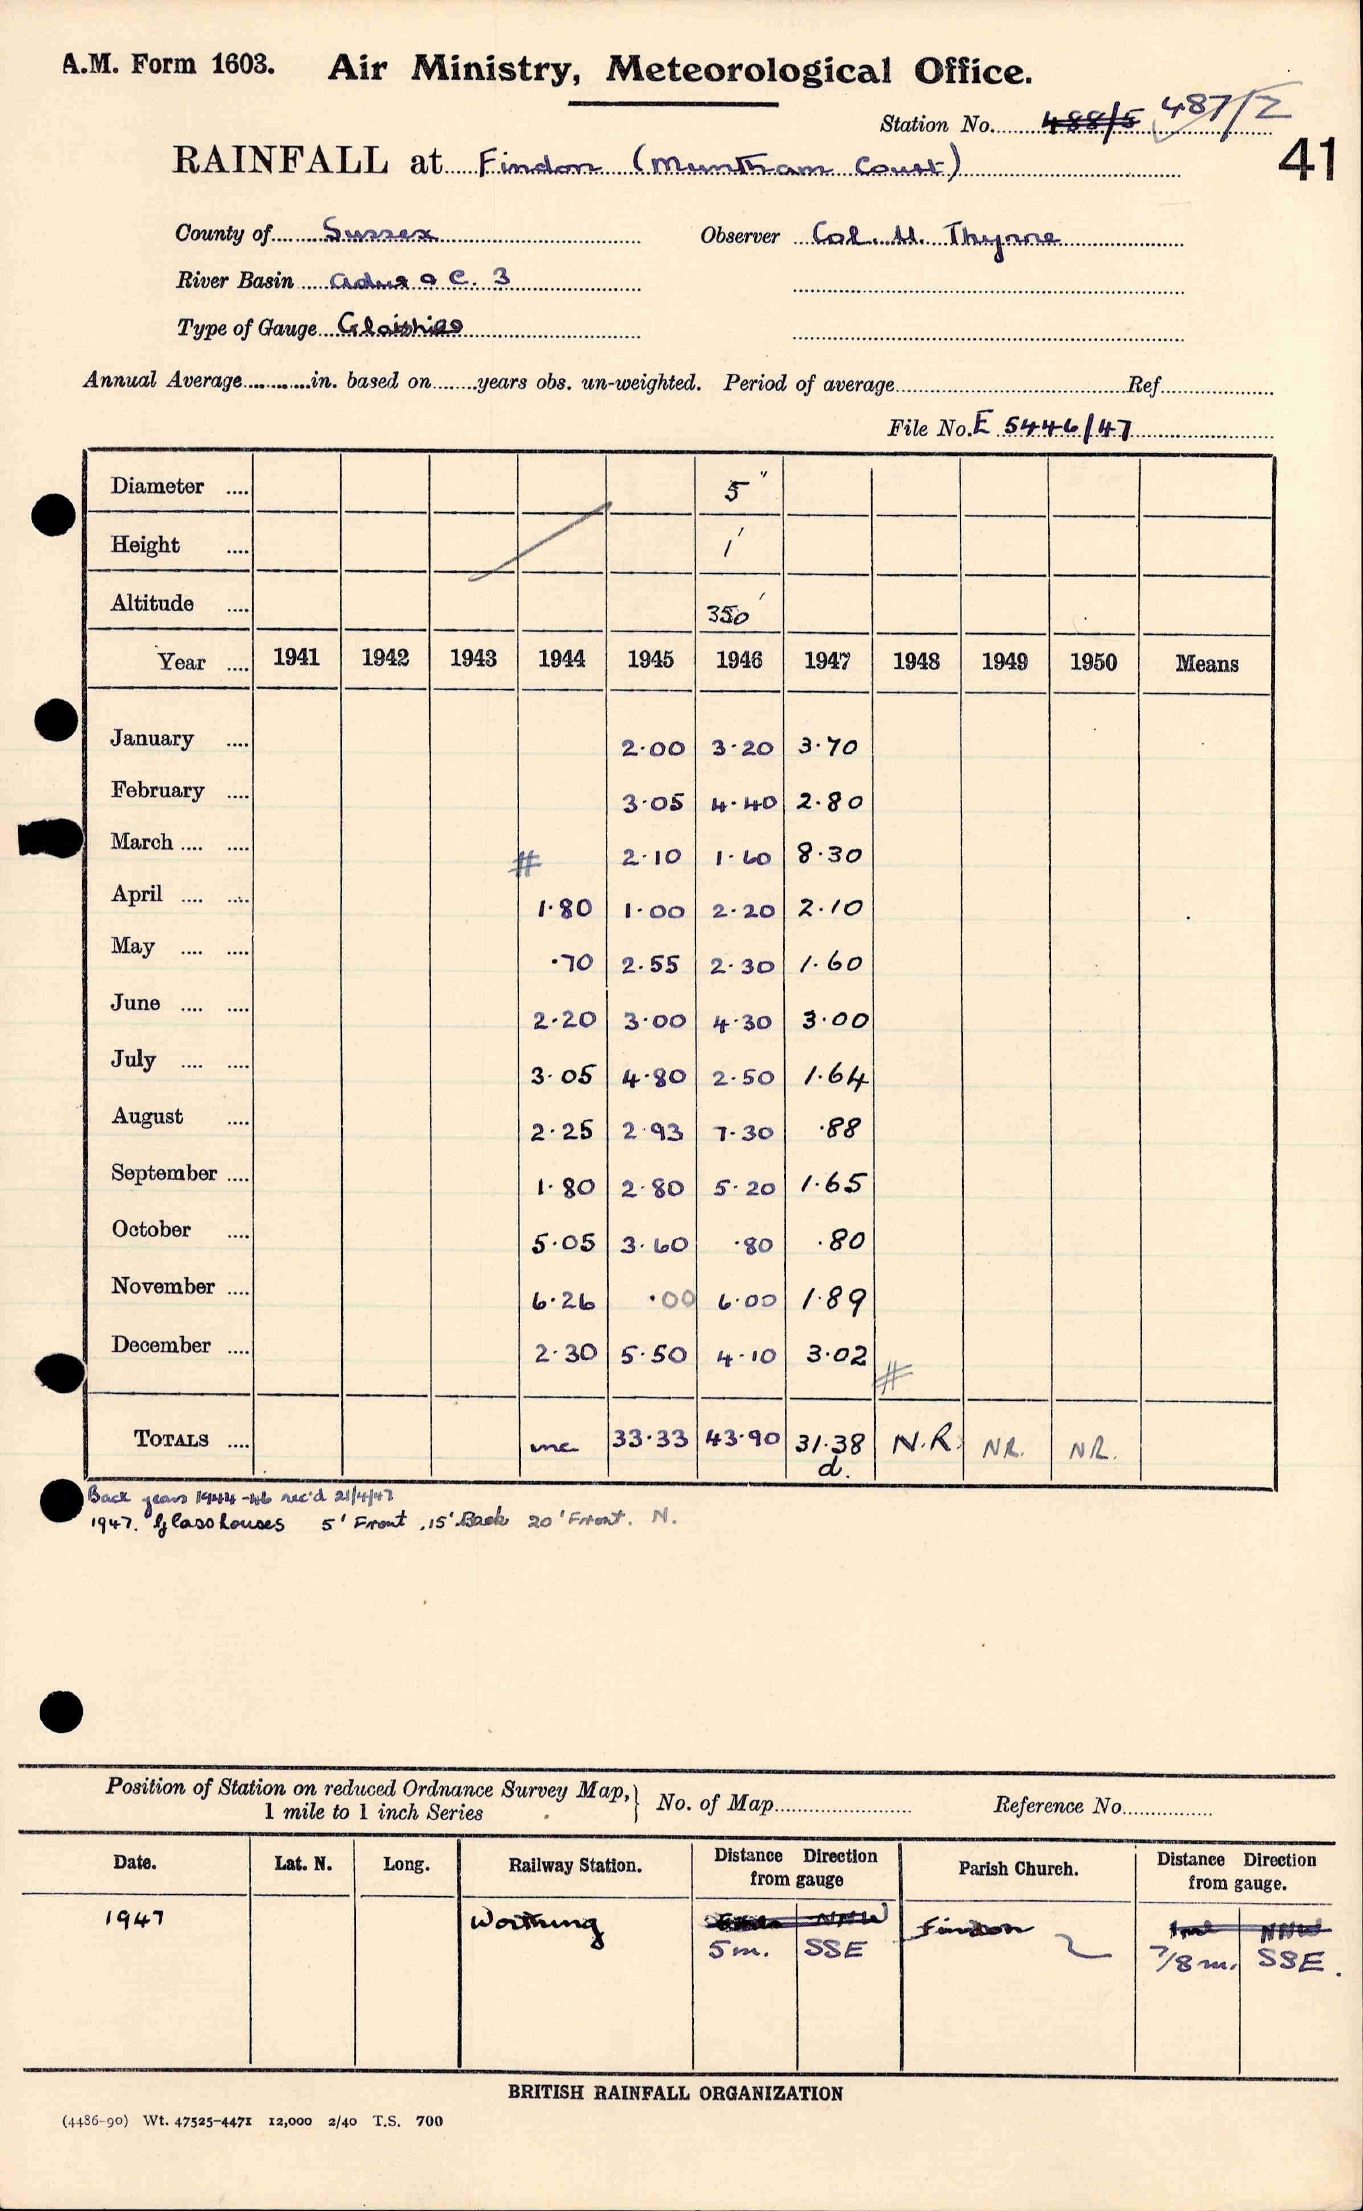 A.M. Form 1603. Air Ministry, Meteorological Office.
Station No. 488/5 487/2
41
RAINFALL at Findon (Muntham Court)
County of Sussex Observer Col. U. Thynne
River Basin Adur & C. 3
Type of Gauge Glaisher
Annual Average............in. based on........years obs. un-weighted. Period of average........ Ref........
File No. E 5446/47
Diameter .... 5"
Height .... 1'
Altitude .... 350'
Year .... 1941 1942 1943 1944 1945 1946 1947 1948 1949 1950 Means
January .... 2·00 3·20 3·70
February .... 3·05 4·40 2·80
March .... .... # 2·10 1·60 8·30
April .... .... 1·80 1·00 2·20 2·10
May .... .... ·70 2·55 2·30 1·60
June .... .... 2·20 3·00 4·30 3·00
July .... .... 3·05 4·80 2·50 1·64
August .... 2·25 2·93 7·30 ·88
September .... 1·80 2·80 5·20 1·65
October .... 5·05 3·60 ·80 ·80
November .... 6·26 ·00 6·00 1·89
December .... 2·30 5·50 4·10 3·02 #
TOTALS .... inc 33·33 43·90 31·38 N.R. NR. NR.
d.
Back years 1944-46 rec'd 21/4/47
1947. Glasshouses 5' Front, 15' Back 20' Front. N.
Position of Station on reduced Ordnance Survey Map,
1 mile to 1 inch Series } No. of Map........ Reference No........
Date. Lat. N. Long. Railway Station. Distance Direction from gauge Parish Church. Distance Direction from gauge.
1947 Worthing NNW Findon 1ml NNW
5m. SSE 7/8 m. SSE.
BRITISH RAINFALL ORGANIZATION
(4486-90) Wt. 47525-4471 12,000 2/40 T.S. 700